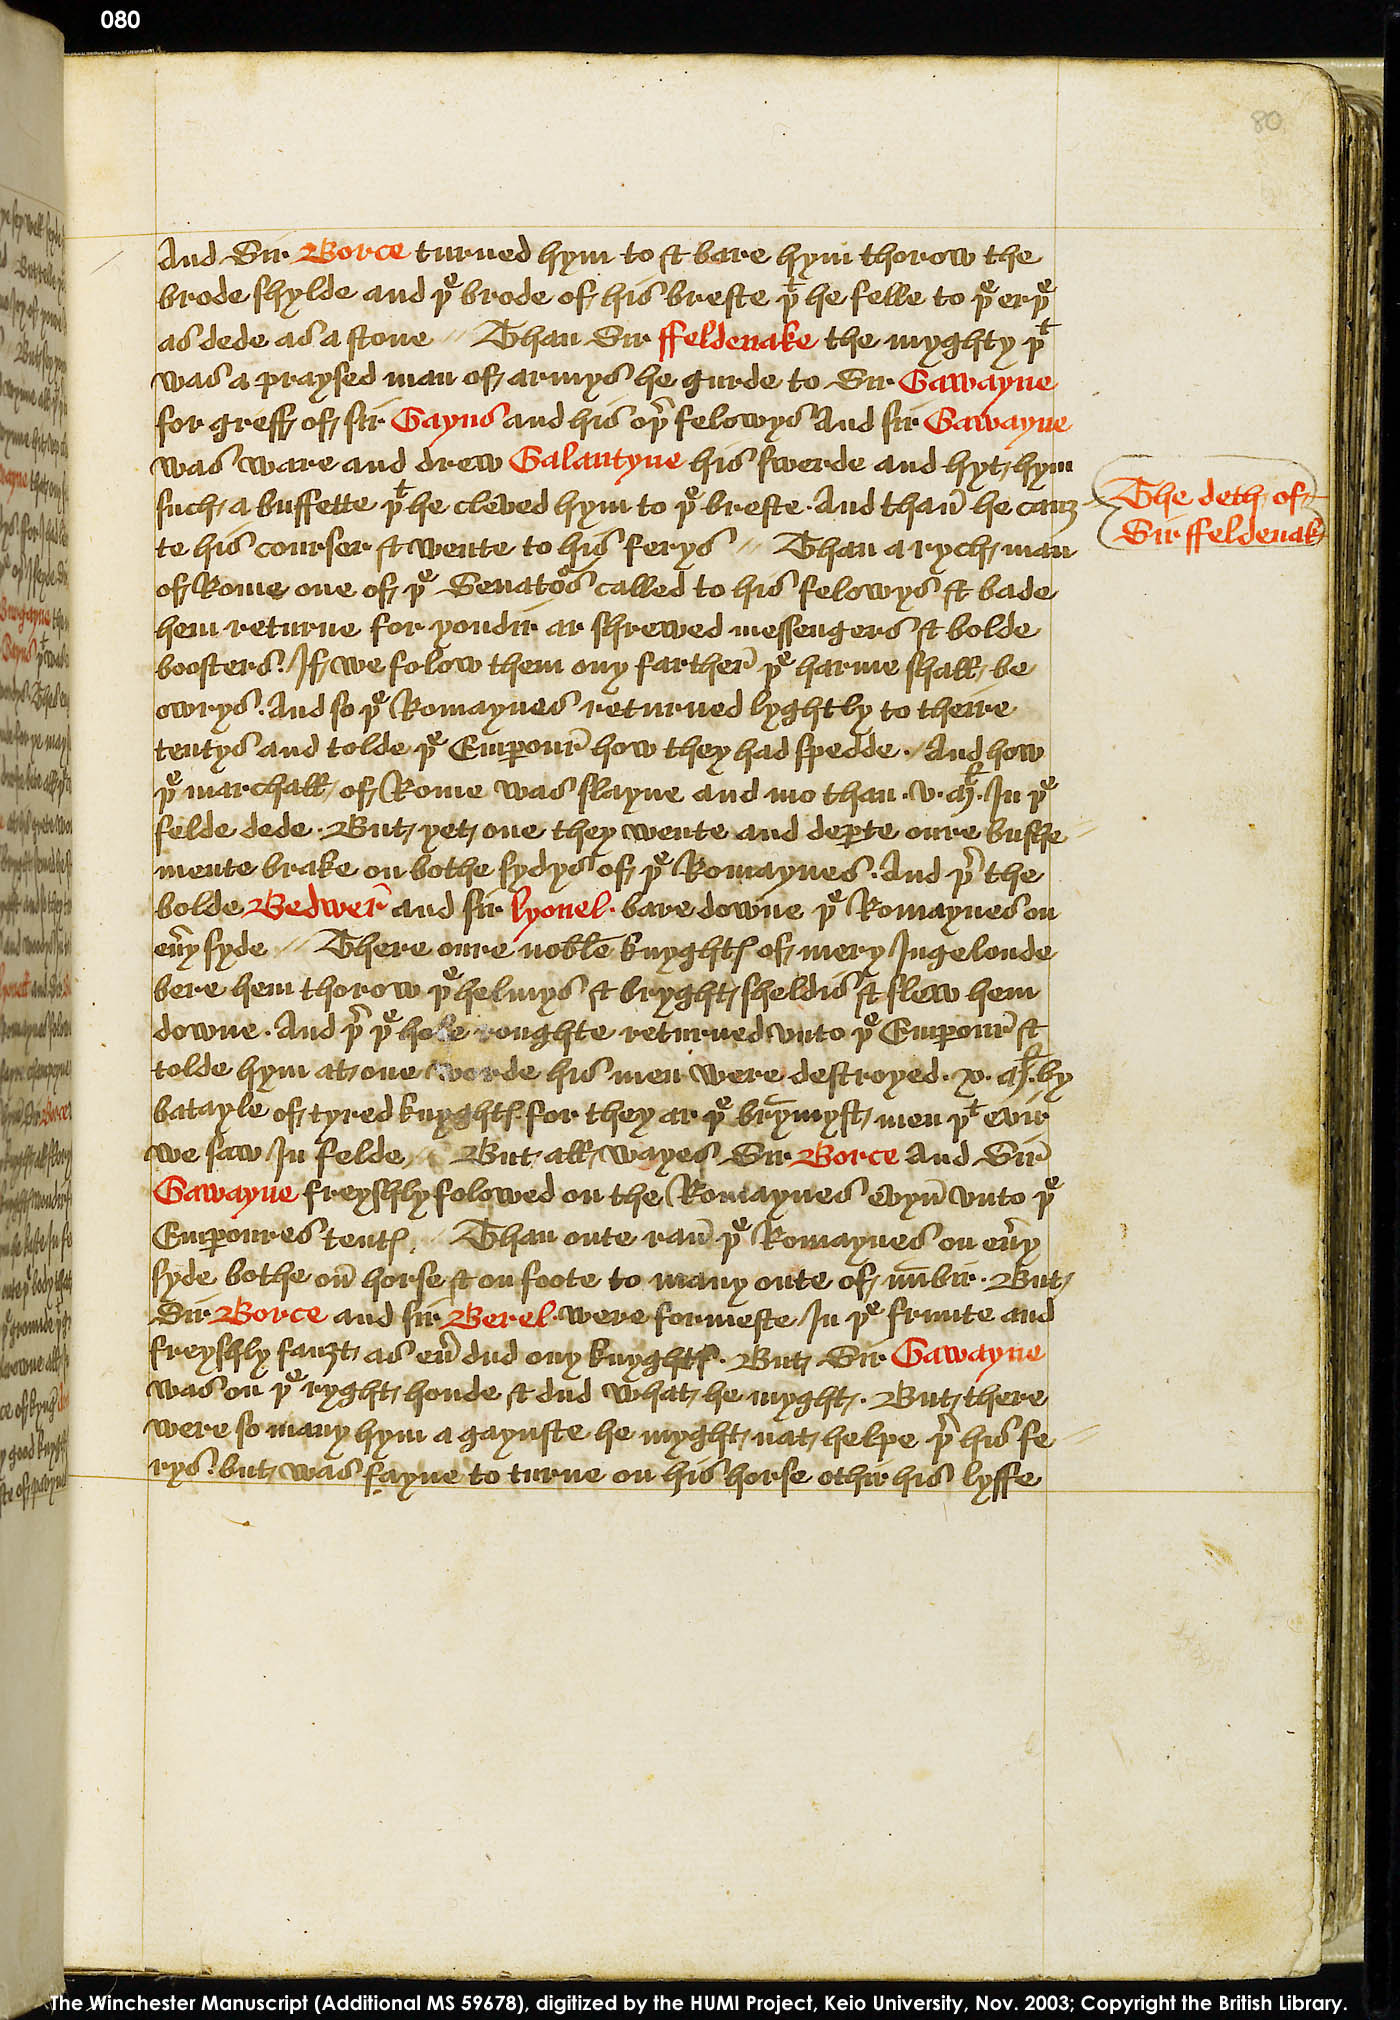 080
80
And Sir Borce turned hym to & bare hym thorow the
brode shylde and þe brode of his breste þt he felle to þe erþe
as dede as a stone // Than Sir ffeldenake the myghty þt
was a praysed man of armys he gurde to Sir Gawayne
for greff of sir Gayus and his oþr felowys And sir Gawayne
was ware and drew Galantyne his swerde and hyt hym
such a buffette þt he cleved hym to þe breste . And than he cauȝ
te his courser & wente to his ferys // Than a rych man
of Rome one of þe Senatos called to his felowys & bade
hem returne for yondir ar shrewed messengers & bolde
boosters . If we folow them ony farther þe harme shall be
owrys . And so þe Romaynes returned lyghtly to theire
tentys and tolde þe Empour how they had spedde . And how
þe marchall of Rome was slayne and mo than . v . Ml . In þe
felde dede . But yet one they wente and depte oure bushe
mente brake on bothe sydys of þe Romaynes . And þr the
bolde Bedwer and sir lyonel . bare downe þe Romaynes on
euy syde // There oure noble knyghts of mery Ingelonde
bere hem thorow þe helmys & bryght sheldis & slew hem
downe . And þr þe hole roughte returned vnto þe Empour &
tolde hym at one worde his men were destroyed . x . Ml . by
batayle of tyred knyghts . for they ar þe brymyst men þt evir
we saw In felde // But all wayes Sir Borce And Sir
Gawayne freyshly folowed on the Romaynes evyn vnto þe
Empoures tents // Than oute ran þe Romaynes on euy
syde bothe on horse & on foote to many oute of nūbir . But
Sir Borce and sir Berel . were formeste In þe frunte and
freyshly fauȝt as eu dud ony knyghts . But Sir Gawayne
was on þe ryght honde & dud what he myght . But there
were so many hym a gaynste he myght nat helpe þr his fe
rys . but was fayne to turne on his horse othir his lyffe
The deth of
Sir ffeldenak
The Winchester Manuscript (Additional MS 59678), digitized by the HUMI Project, Keio University, Nov. 2003; Copyright the British Library.